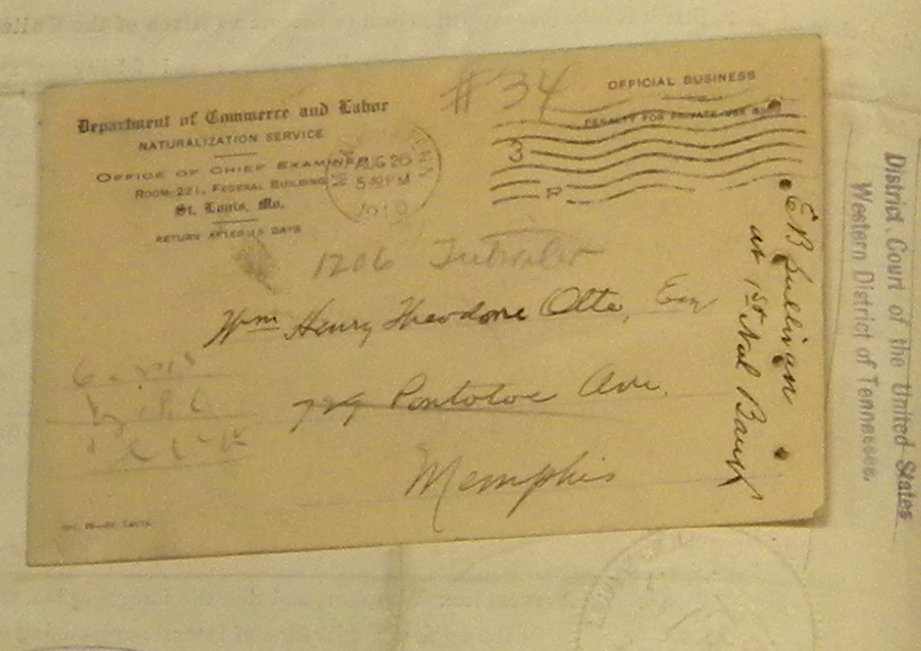 #34
OFFICIAL BUSINESS
PENALTY FOR PRIVATE USE
Department of Commerce and Labor
NATURALIZATION SERVICE
OFFICE OF CHIEF EXAMINER
ROOM 221, FEDERAL BUILDING
St. Louis, Mo.
RETURN AFTER DAYS
AUG 26
5-PM
1910
1206
Wm Henry Theodore Otte, Esq
729 Pontotoc Ave.
Memphis
E B Sullivan
at 1st Nat Bank
District Court of the United States
Western District of Tennessee.